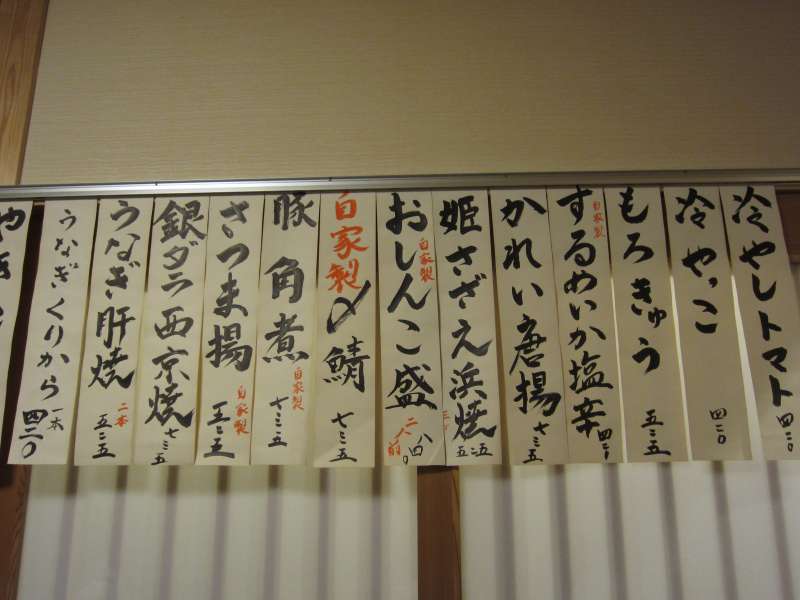 冷やしトマト 四二〇
冷やっこ 四二〇
もろきゅう 五二五
自家製 するめいか塩辛 四二〇
かれい唐揚 七三五
姫さざえ浜焼 五二五
自家製 おしんこ盛 二人前 八四〇
自家製〆鯖 七三五
豚角煮 自家製 七三五
さつま揚 自家製 五二五
銀ダラ西京焼 七三五
うなぎ肝焼 二本 五二五
うなぎくりから 一本 四二〇